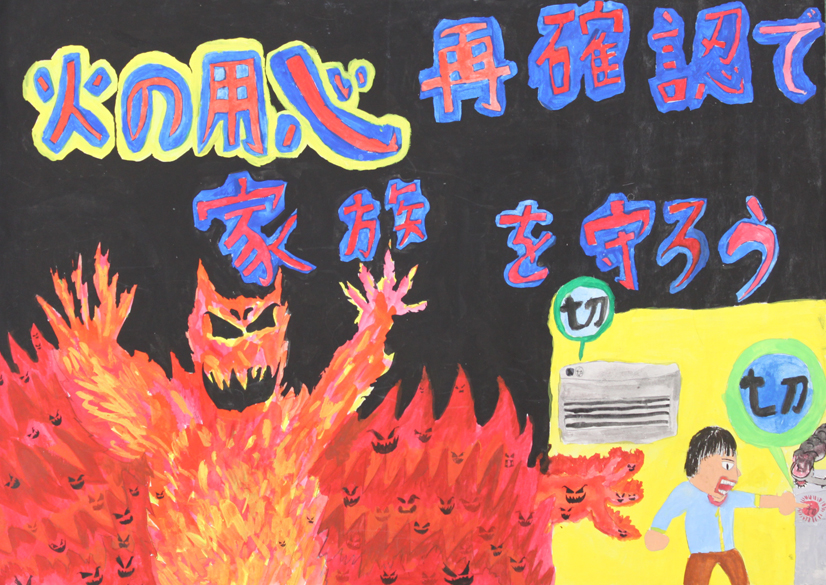 火の用心
再確認で
家族を守ろう
切
切